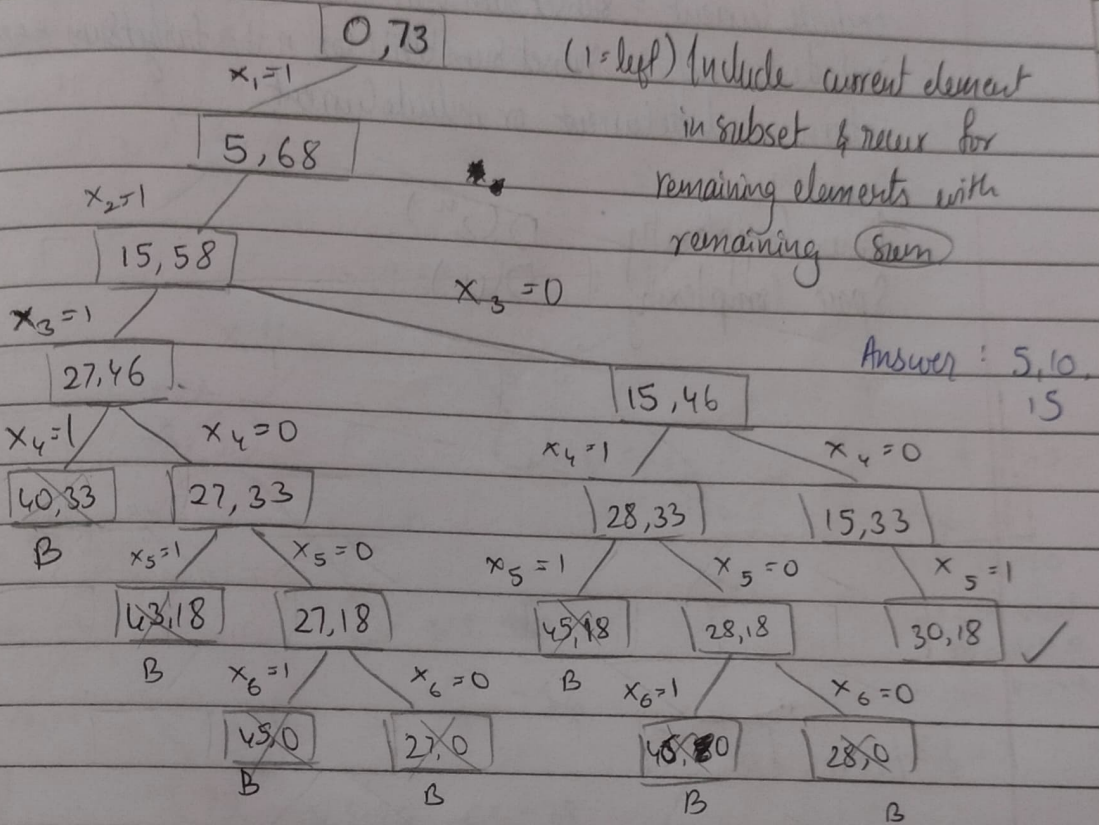 0,73
x₁=1
(1=left) Include current element
in subset & recur for
remaining elements with
remaining sum
5,68
x₂=1
15,58
x₃=1
x₃=0
Answer : 5,10,
15
27,46
15,46
x₄=1
x₄=0
x₄=1
x₄=0
40,33
27,33
28,33
15,33
B
x₅=1
x₅=0
x₅=1
x₅=0
x₅=1
43,18
27,18
45,18
28,18
30,18 ✓
B
x₆=1
x₆=0
B
x₆=1
x₆=0
45,0
27,0
28,0
B
B
B
B